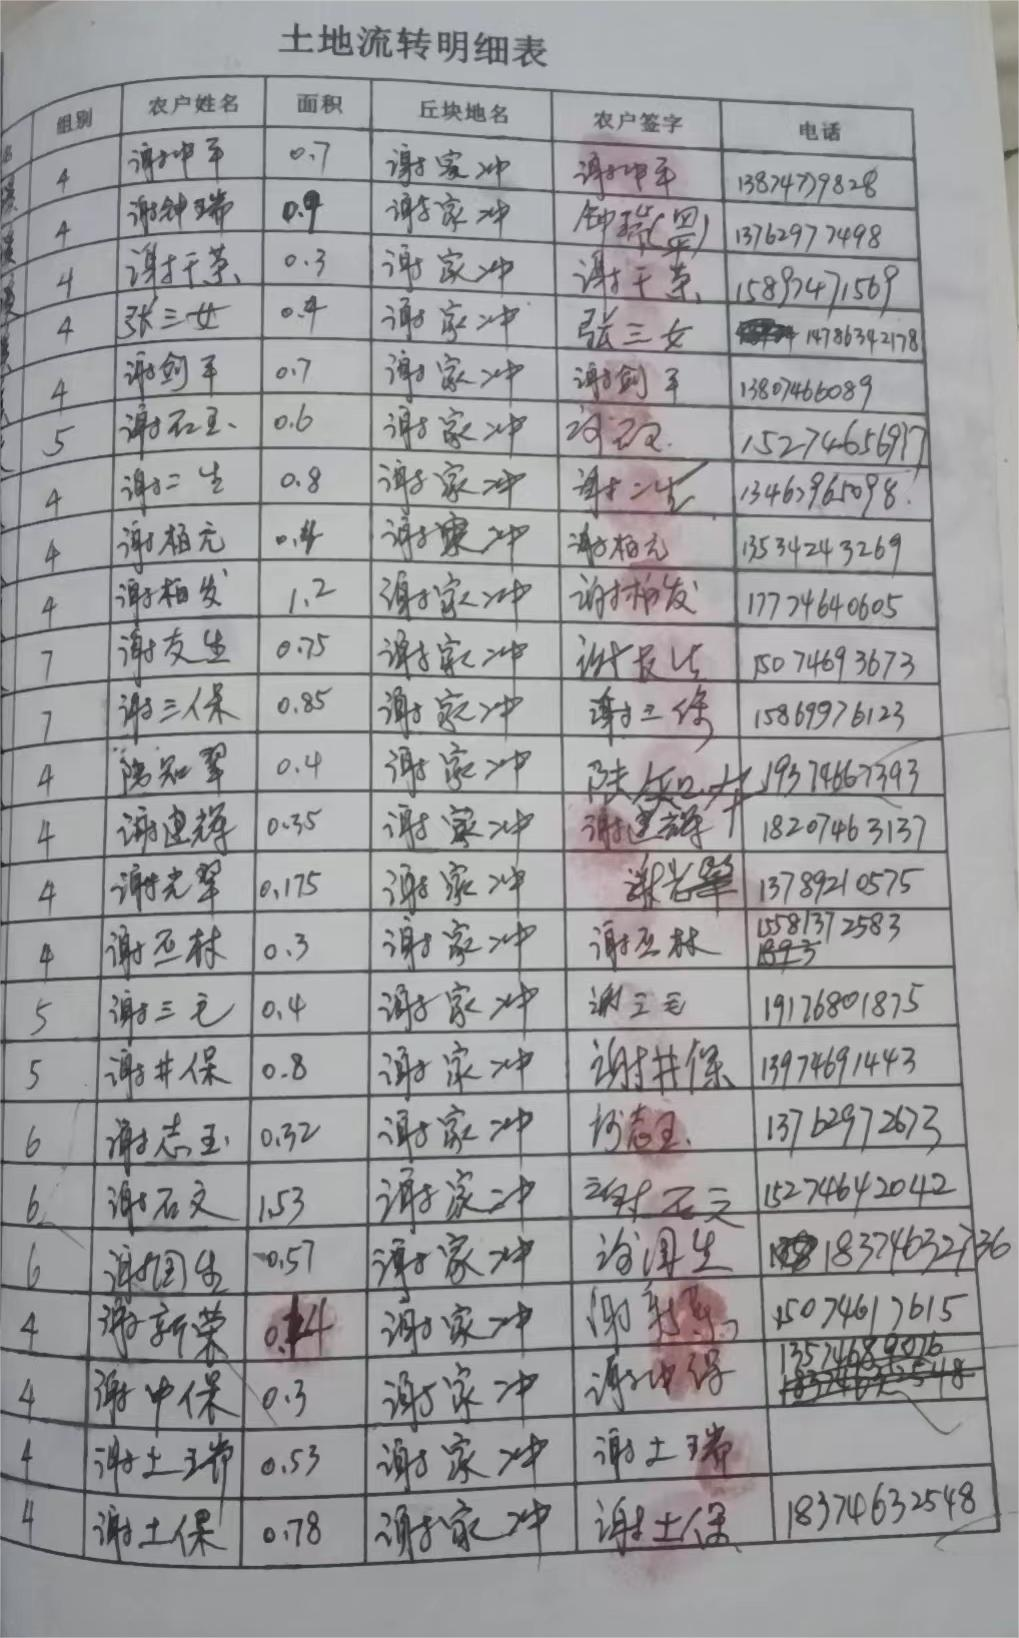 土地流转明细表
组别 农户姓名 面积 丘块地名 农户签字 电话
4 谢中平 0.7 谢家冲 谢中平 13874779828
4 谢钟瑞 0.9 谢家冲 钟瑞 13762977498
4 谢千荣 0.3 谢家冲 谢千荣 15897471569
4 张三女 0.4 谢家冲 张三女 14786342178
4 谢剑平 0.7 谢家冲 谢剑平 13807466089
5 谢石玉 0.6 谢家冲 15274656917
4 谢二生 0.8 谢家冲 谢二生 13467965098
4 谢柏元 0.4 谢家冲 谢柏元 13534243269
4 谢柏发 1.2 谢家冲 谢柏发 17774640605
7 谢友生 0.75 谢家冲 谢友生 15074693673
7 谢三保 0.85 谢家冲 谢三保 15869976123
4 知翠 0.4 谢家冲 19374667393
4 谢建辉 0.35 谢家冲 谢建辉 18207463137
4 谢光翠 0.175 谢家冲 谢光翠 13789210575
4 谢丕林 0.3 谢家冲 谢丕林 15581372583
5 谢三毛 0.4 谢家冲 谢三毛 19176801875
5 谢井保 0.8 谢家冲 谢井保 13974691443
6 谢志玉 0.32 谢家冲 志玉 13762972673
6 谢石文 1.53 谢家冲 谢石文 15274642042
6 谢国生 0.57 谢家冲 谢国生 18374632736
4 谢新荣 0.14 谢家冲 谢新荣 15074617615
4 谢中保 0.3 谢家冲 谢中保 13574689076
18374632548
4 谢土瑞 0.53 谢家冲 谢土瑞
4 谢土保 0.78 谢家冲 谢土保 18374632548